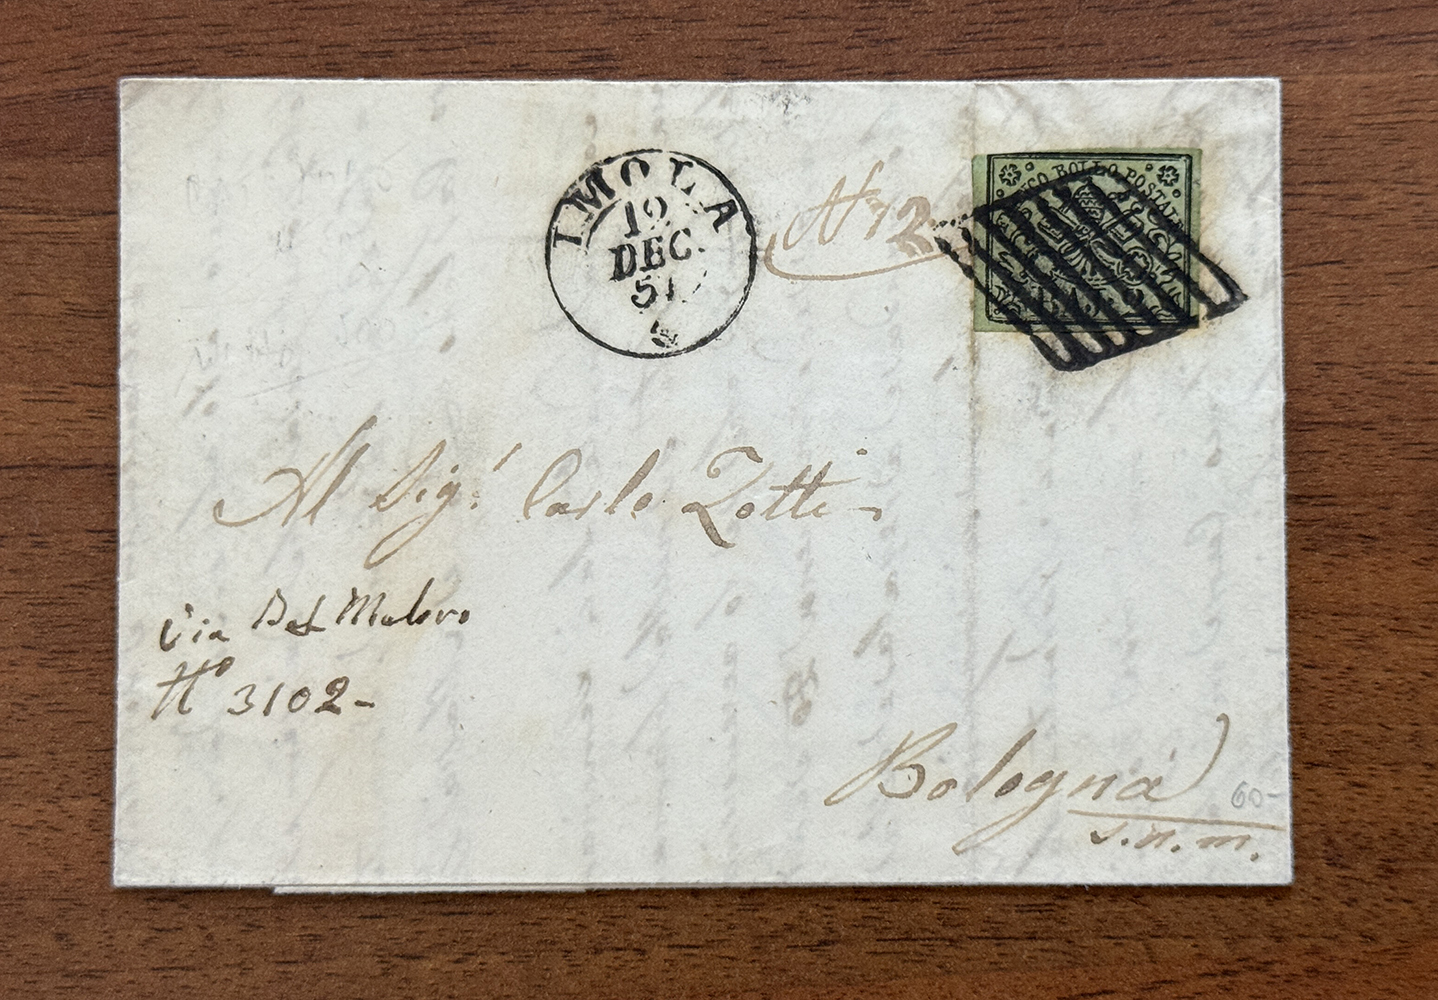 IMOLA
12
DEC.
5
FRANCO BOLLO POSTALE
BAJ 2
N 12
Al Sig.r Carlo Zotti
Via Del
N.o 3102
Bologna
s.n.m.
60